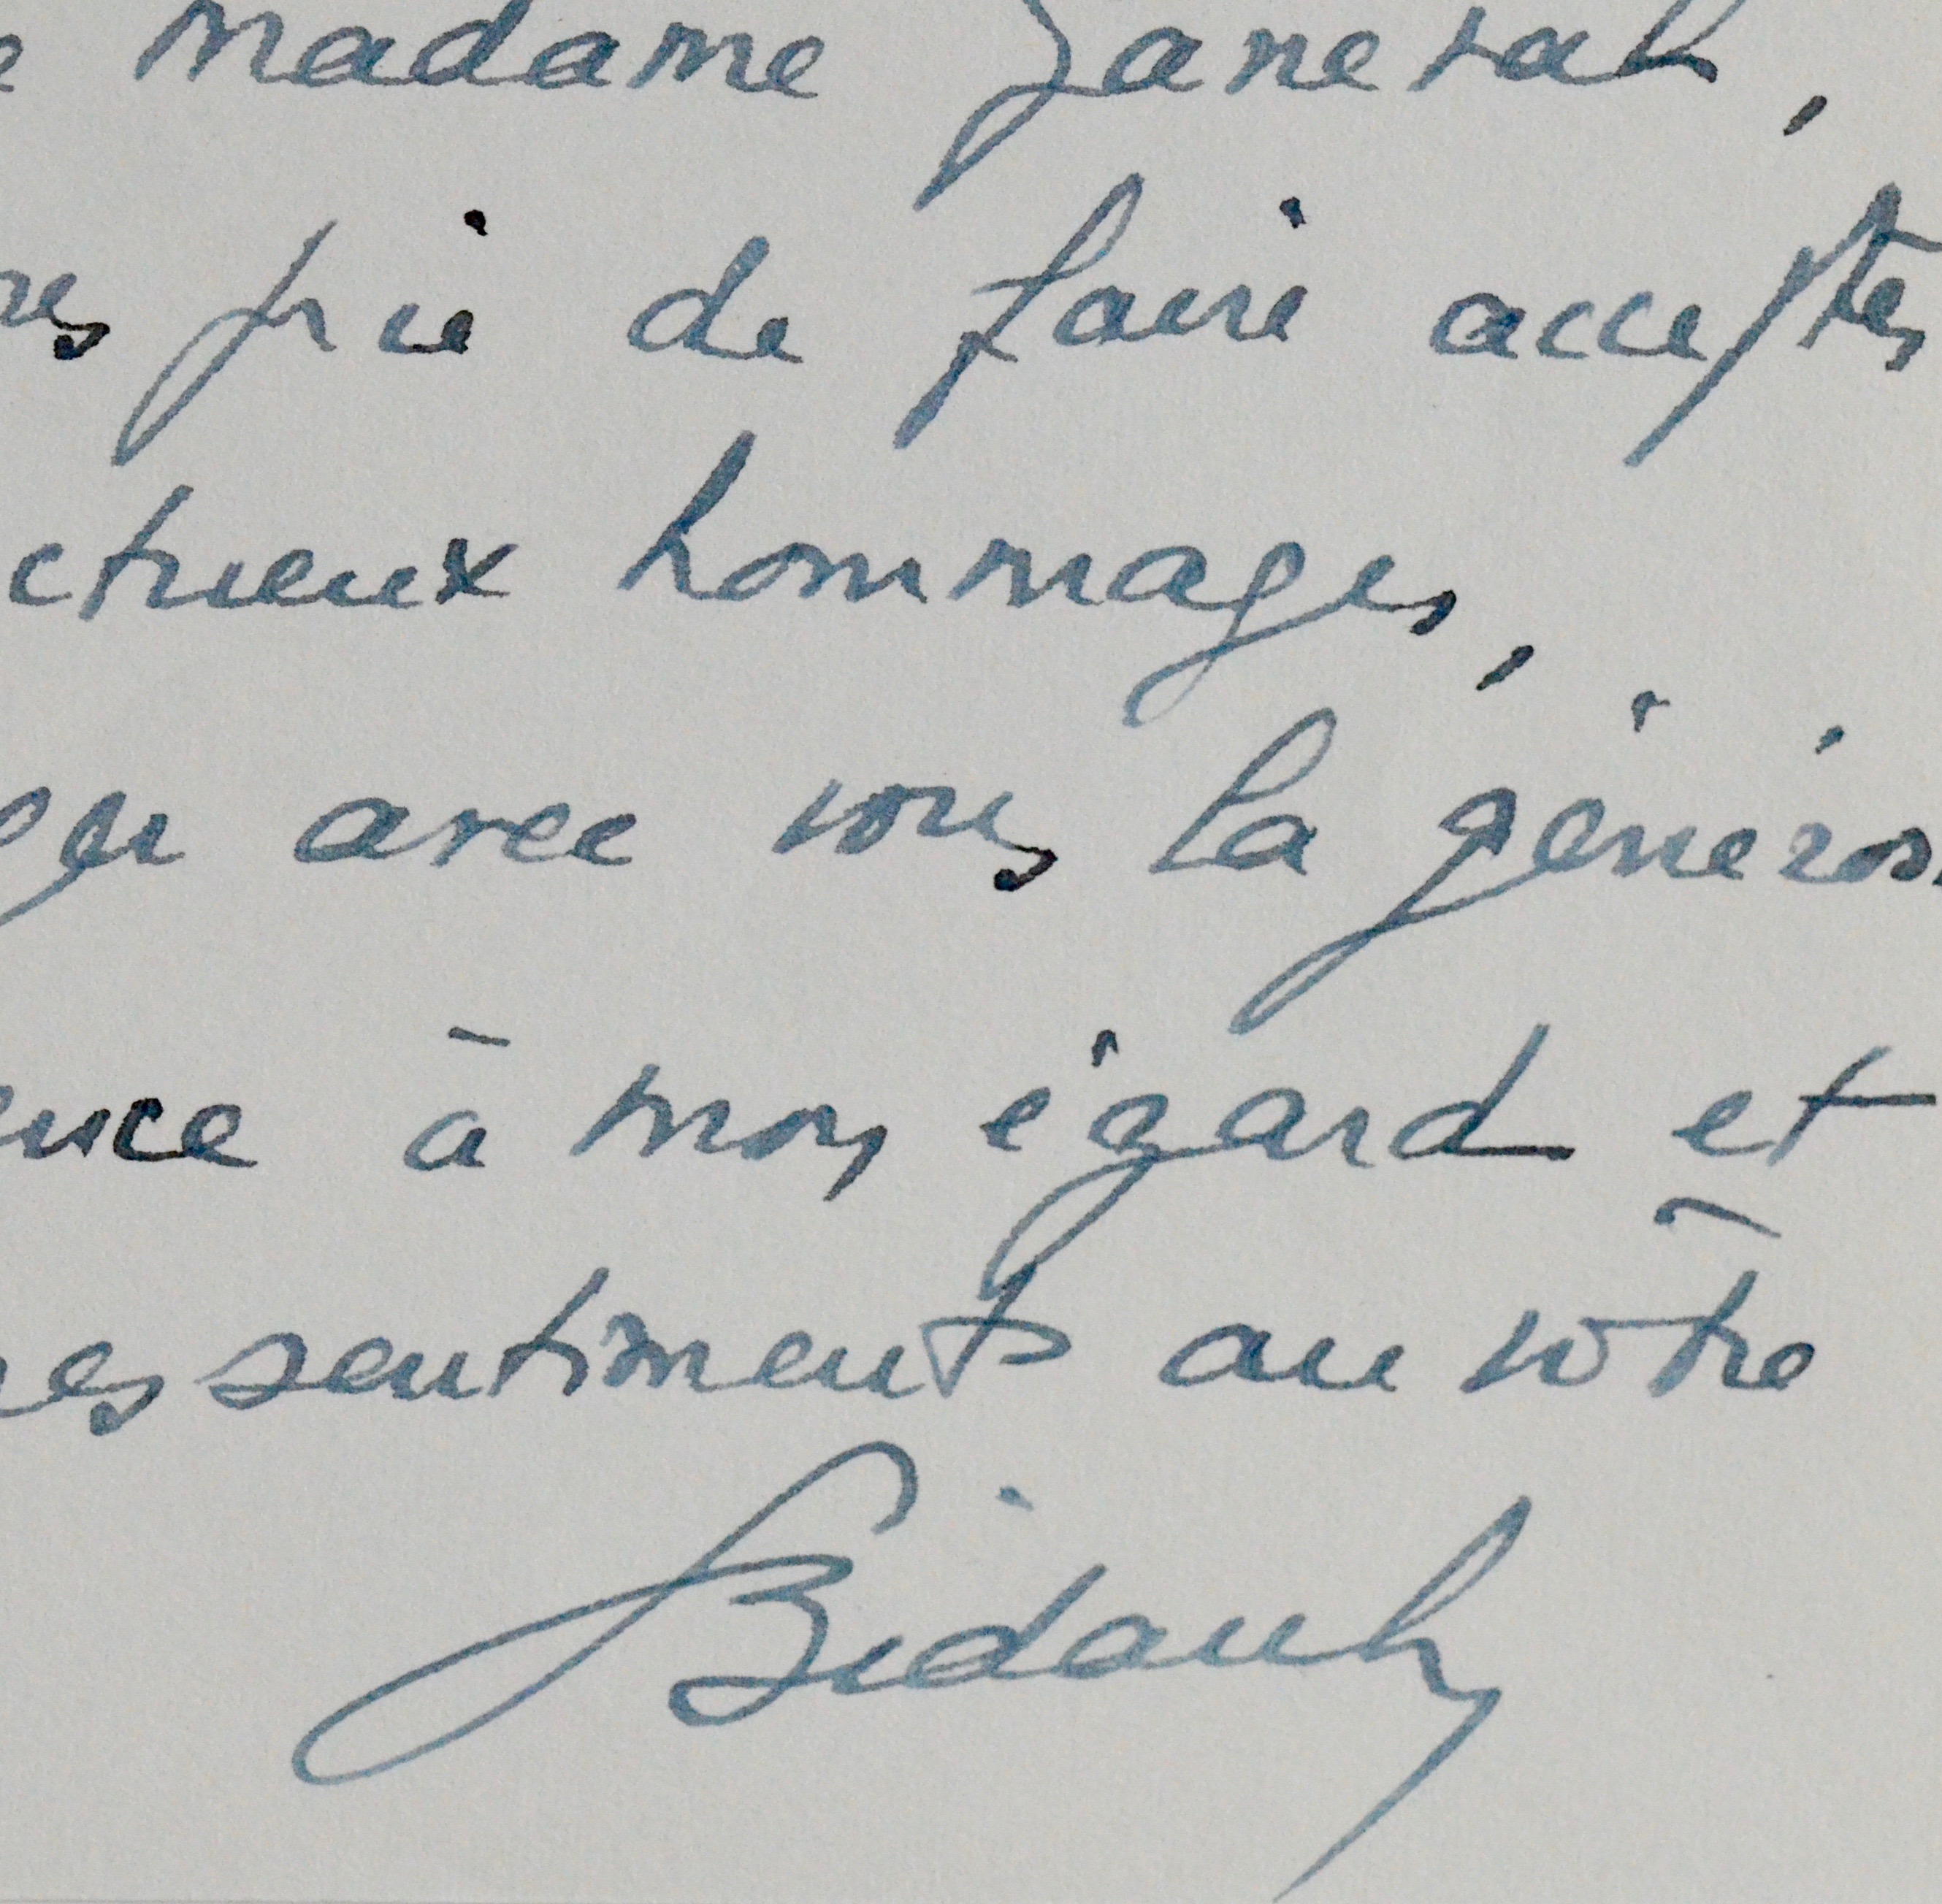 e madame Janerah,
prie de faire accepter
ctueux hommages,
ger avec vous la généros
ence à mon égard et
es sentiments au vôtre
Bidault